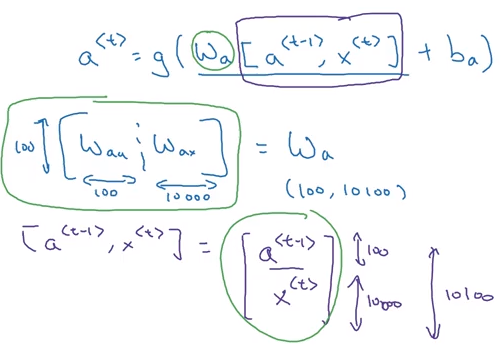 a^<t> = g(W_a [a^<t-1>, x^<t>] + b_a)
100 [W_aa ; W_ax] = W_a
100 10000 (100, 10100)
[a^<t-1>, x^<t>] = [a^<t-1> 100
x^<t>] 10000 10100